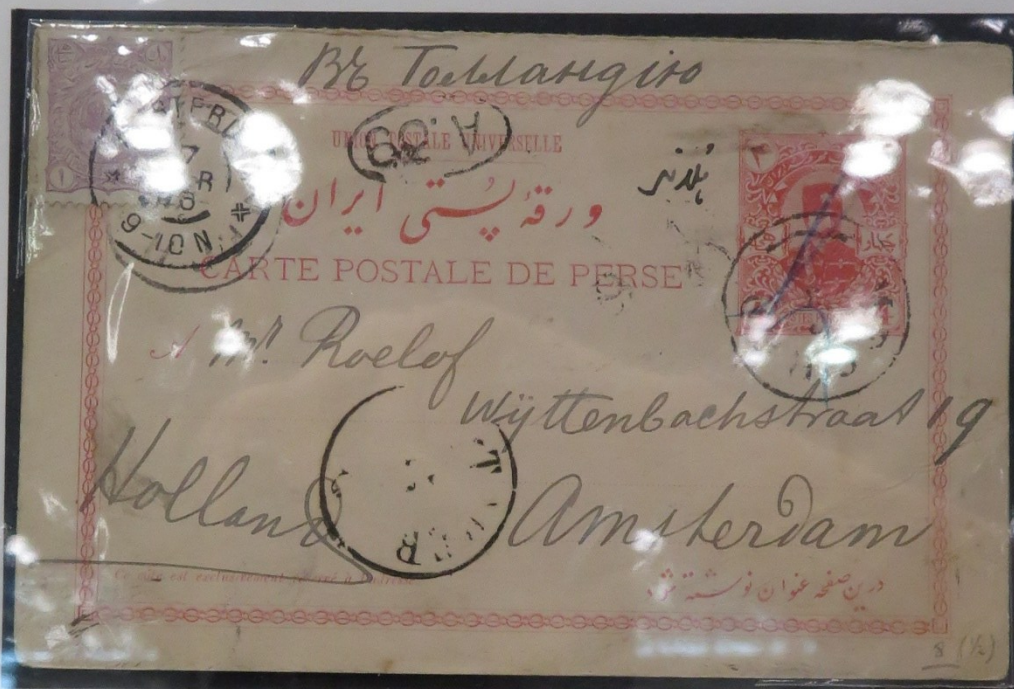 Въ Голландiю
A.39
UNION POSTALE UNIVERSELLE
ورقهٔ پستی ایران
هلند
CARTE POSTALE DE PERSE
A Mr. Roelof
Wÿttenbachstraat 19
Holland Amsterdam
9-10 N
Ce côté est exclusivement réservé à l'adresse
درین صفحه عنوان نوشته شود
8 (½)